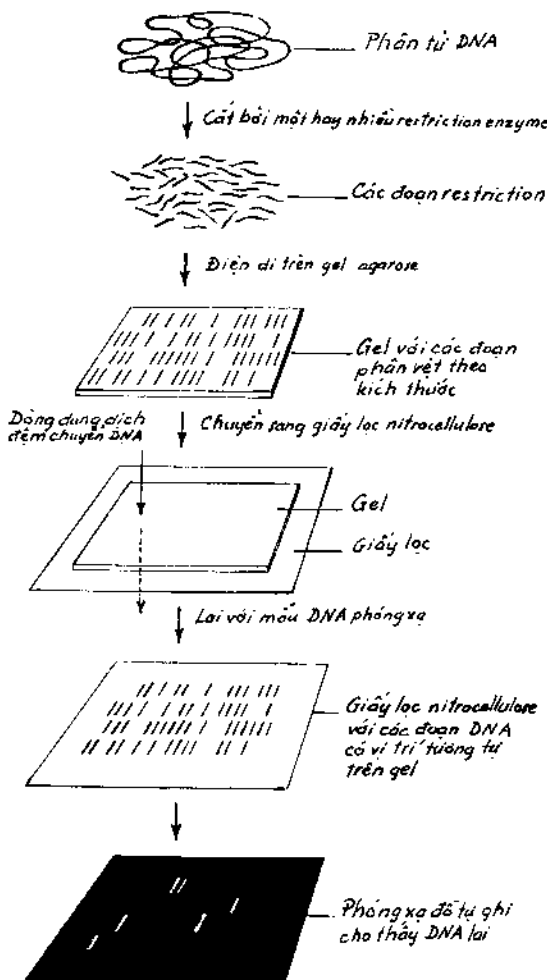 Phân tử DNA
Cắt bởi một hay nhiều restriction enzyme
Các đoạn restriction
Điện di trên gel agarose
Gel với các đoạn
phân vệt theo
kích thước
Dòng dung dịch
đệm chuyển DNA
Chuyển sang giấy lọc nitrocellulose
Gel
Giấy lọc
Lai với mẫu DNA phóng xạ
Giấy lọc nitrocellulose
với các đoạn DNA
có vị trí tương tự
trên gel
Phóng xạ đồ tự ghi
cho thấy DNA lai